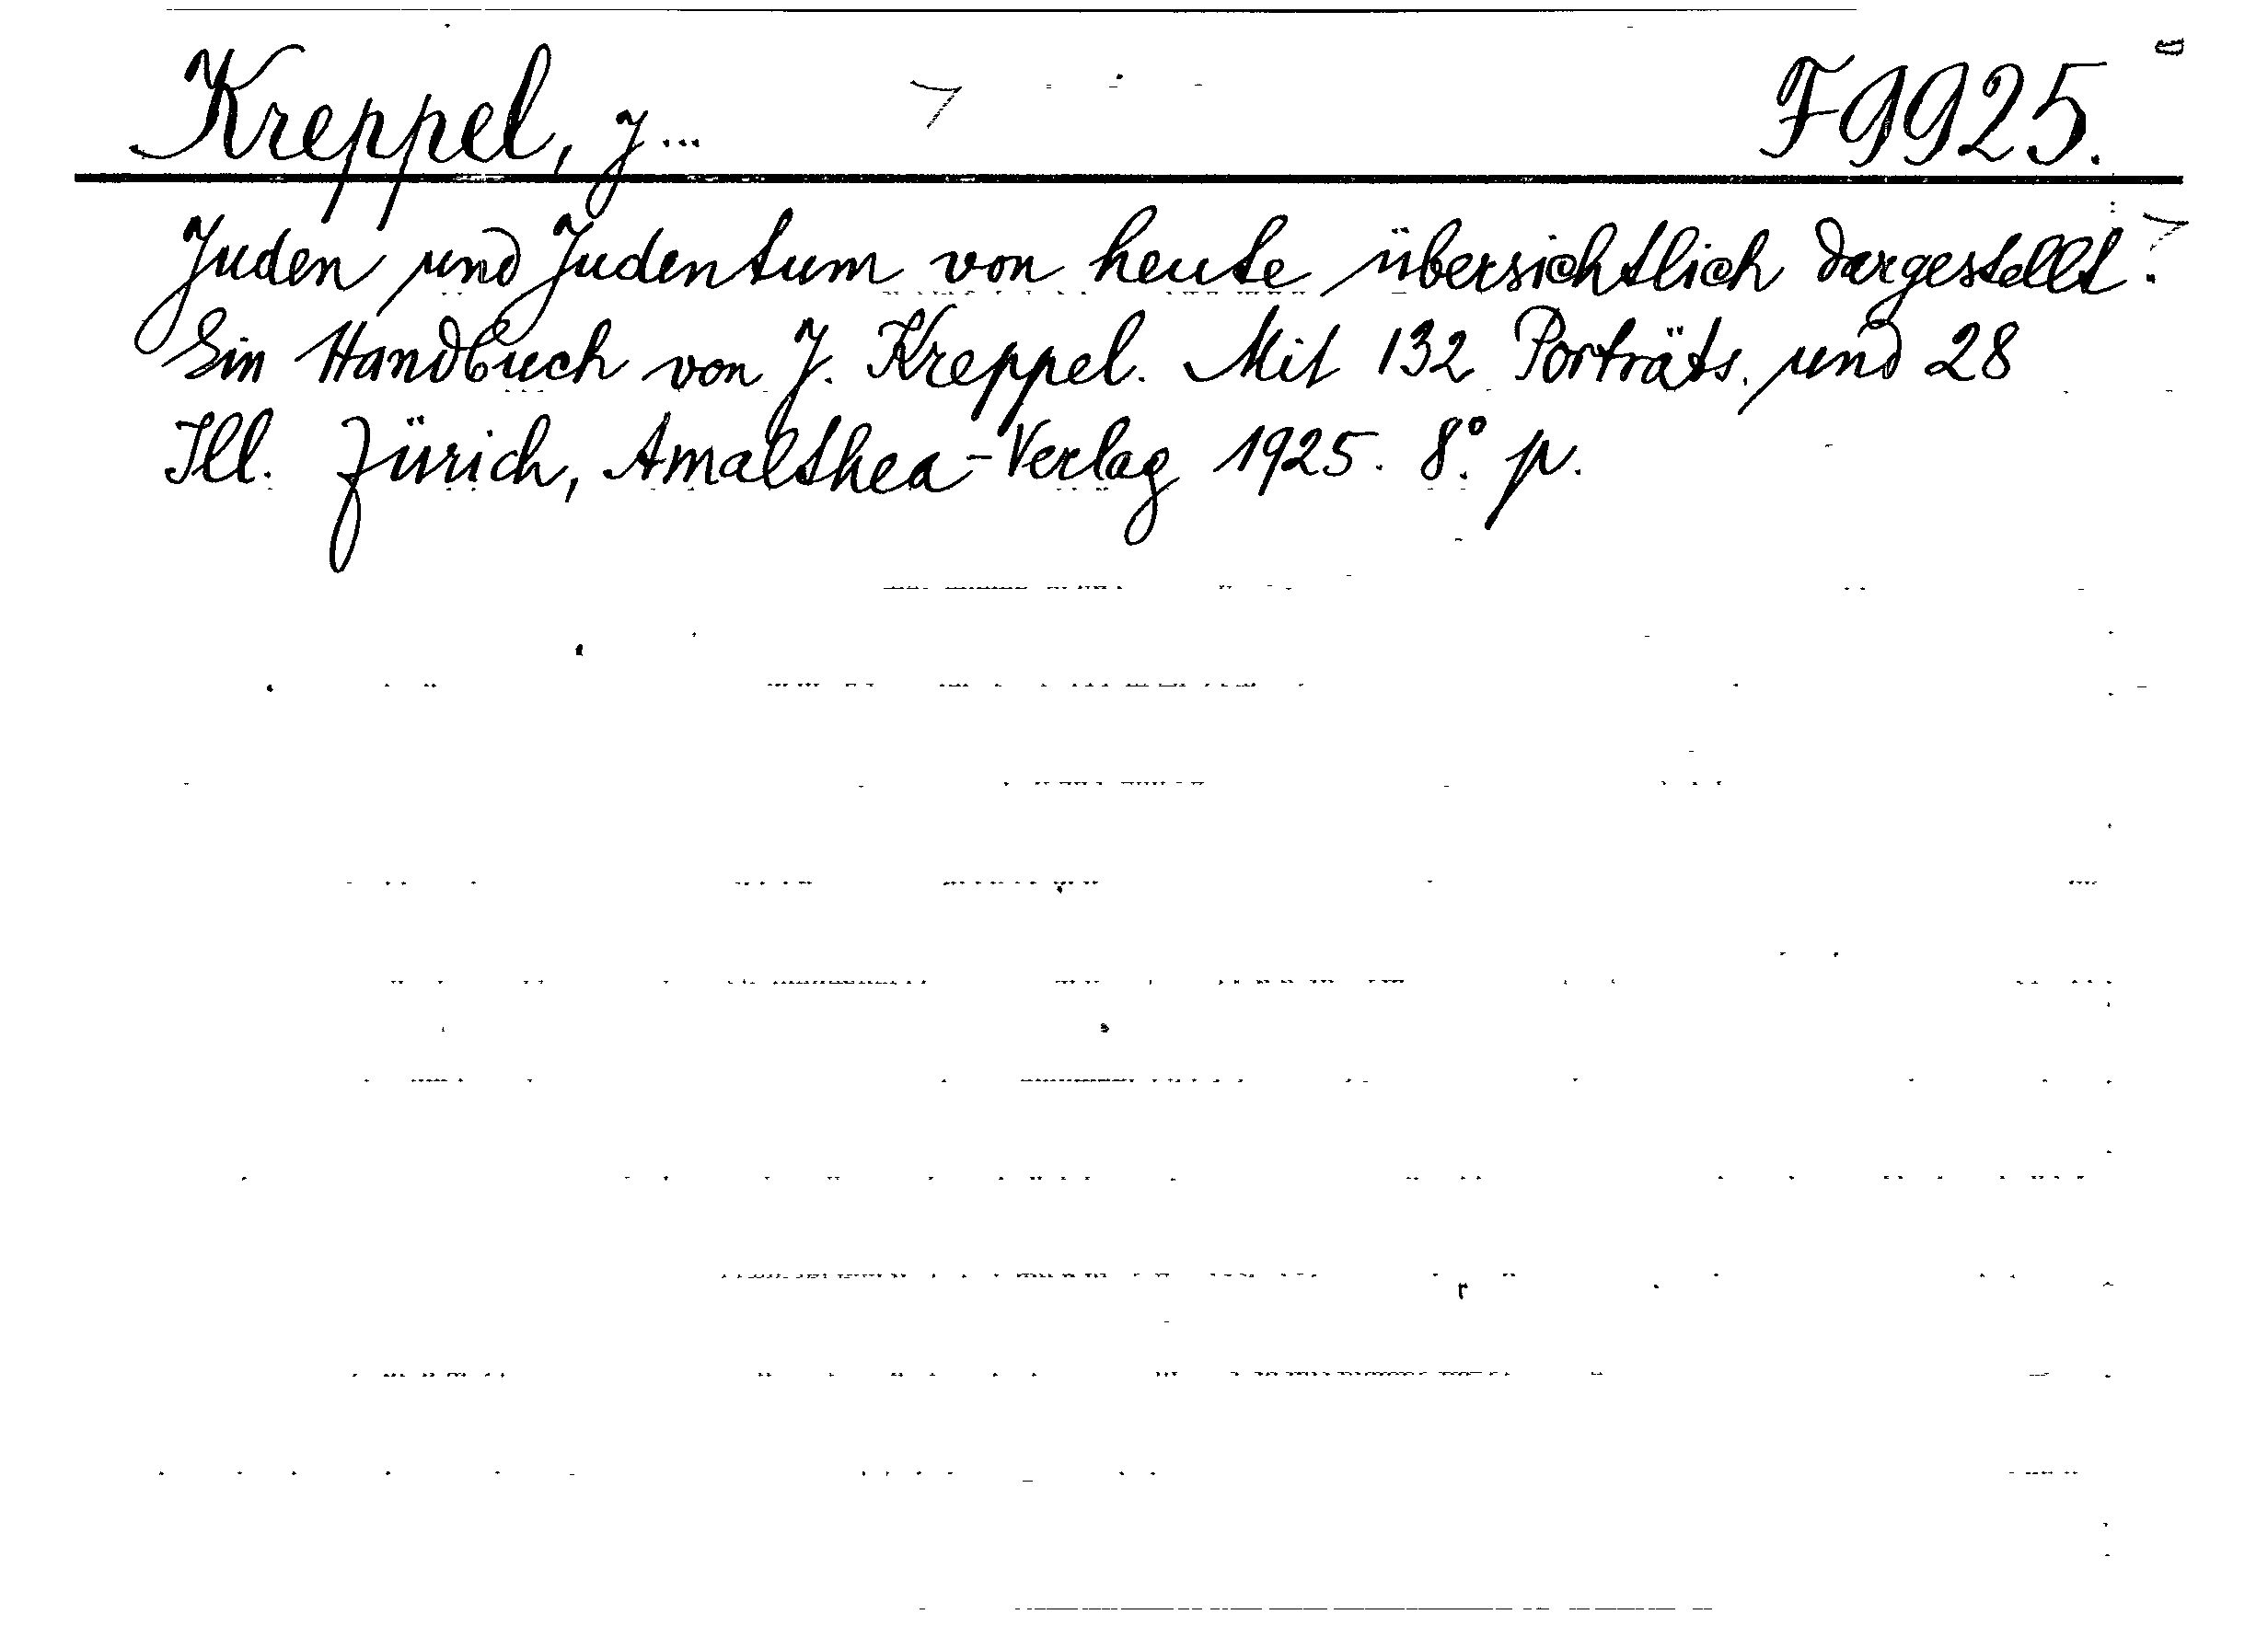 Kreppel, J... F 9925.
Juden und Judentum von heute übersichtlich dargestellt.
Ein Handbuch von J. Kreppel. Mit 132 Porträts. und 28
Ill. Zürich, Amalthea-Verlag 1925. 8°. p.